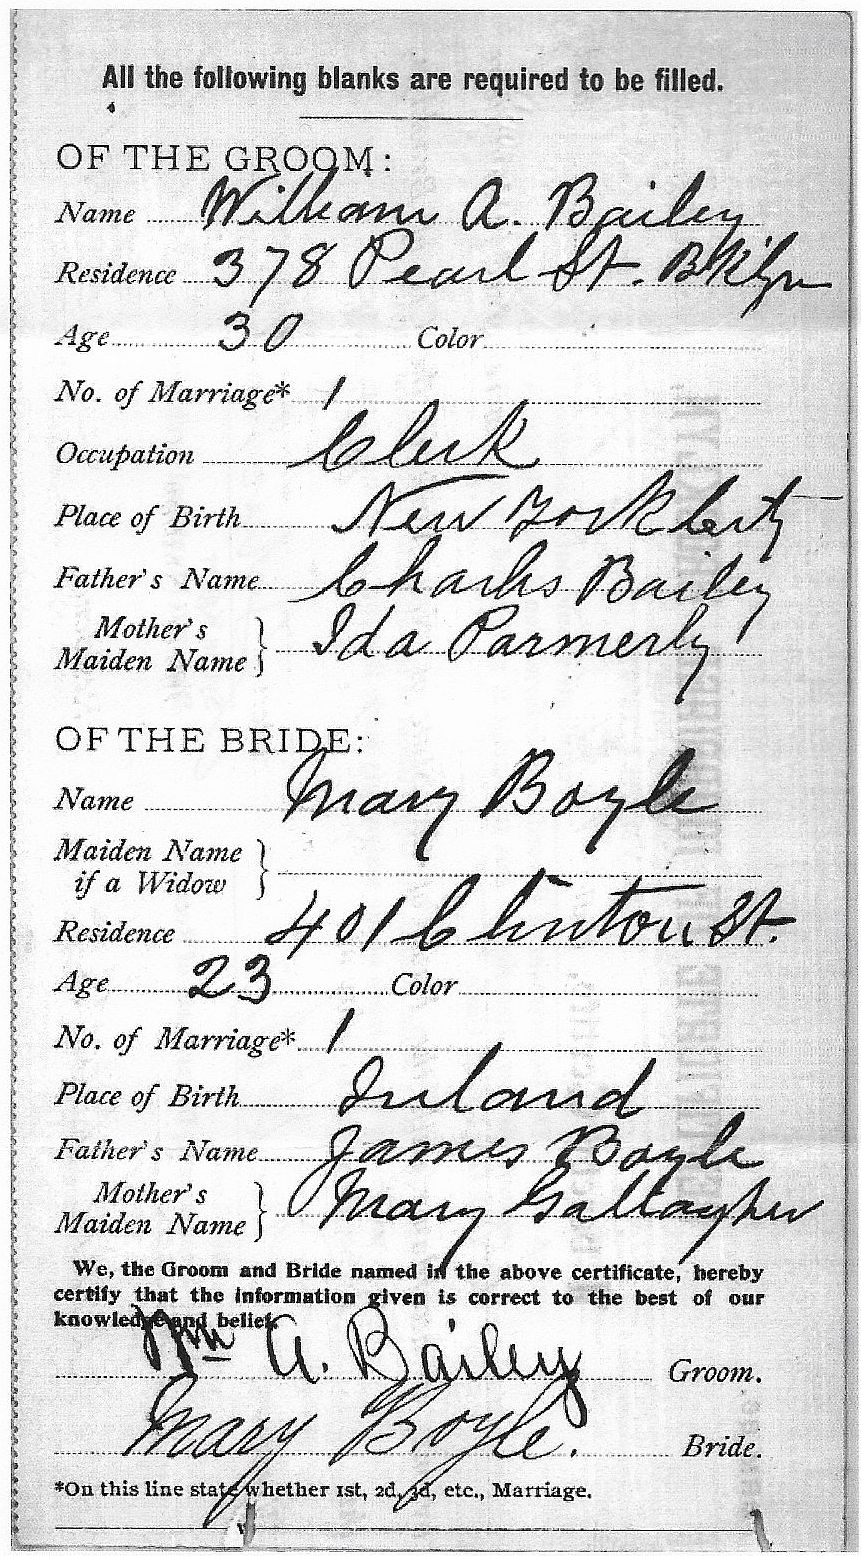 All the following blanks are required to be filled.
OF THE GROOM:
Name William A. Bailey
Residence 378 Pearl St. Bk'lyn
Age 30 Color
No. of Marriage* 1
Occupation Clerk
Place of Birth New York City
Father's Name Charles Bailey
Mother's
Maiden Name Ida Parmerly
OF THE BRIDE:
Name Mary Boyle
Maiden Name
if a Widow
Residence 401 Clinton St.
Age 23 Color
No. of Marriage* 1
Place of Birth Ireland
Father's Name James Boyle
Mother's
Maiden Name Mary Gallagher
We, the Groom and Bride named in the above certificate, hereby
certify that the information given is correct to the best of our
knowledge and belief.
Wm A. Bailey Groom.
Mary Boyle. Bride.
*On this line state whether 1st, 2d, 3d, etc., Marriage.